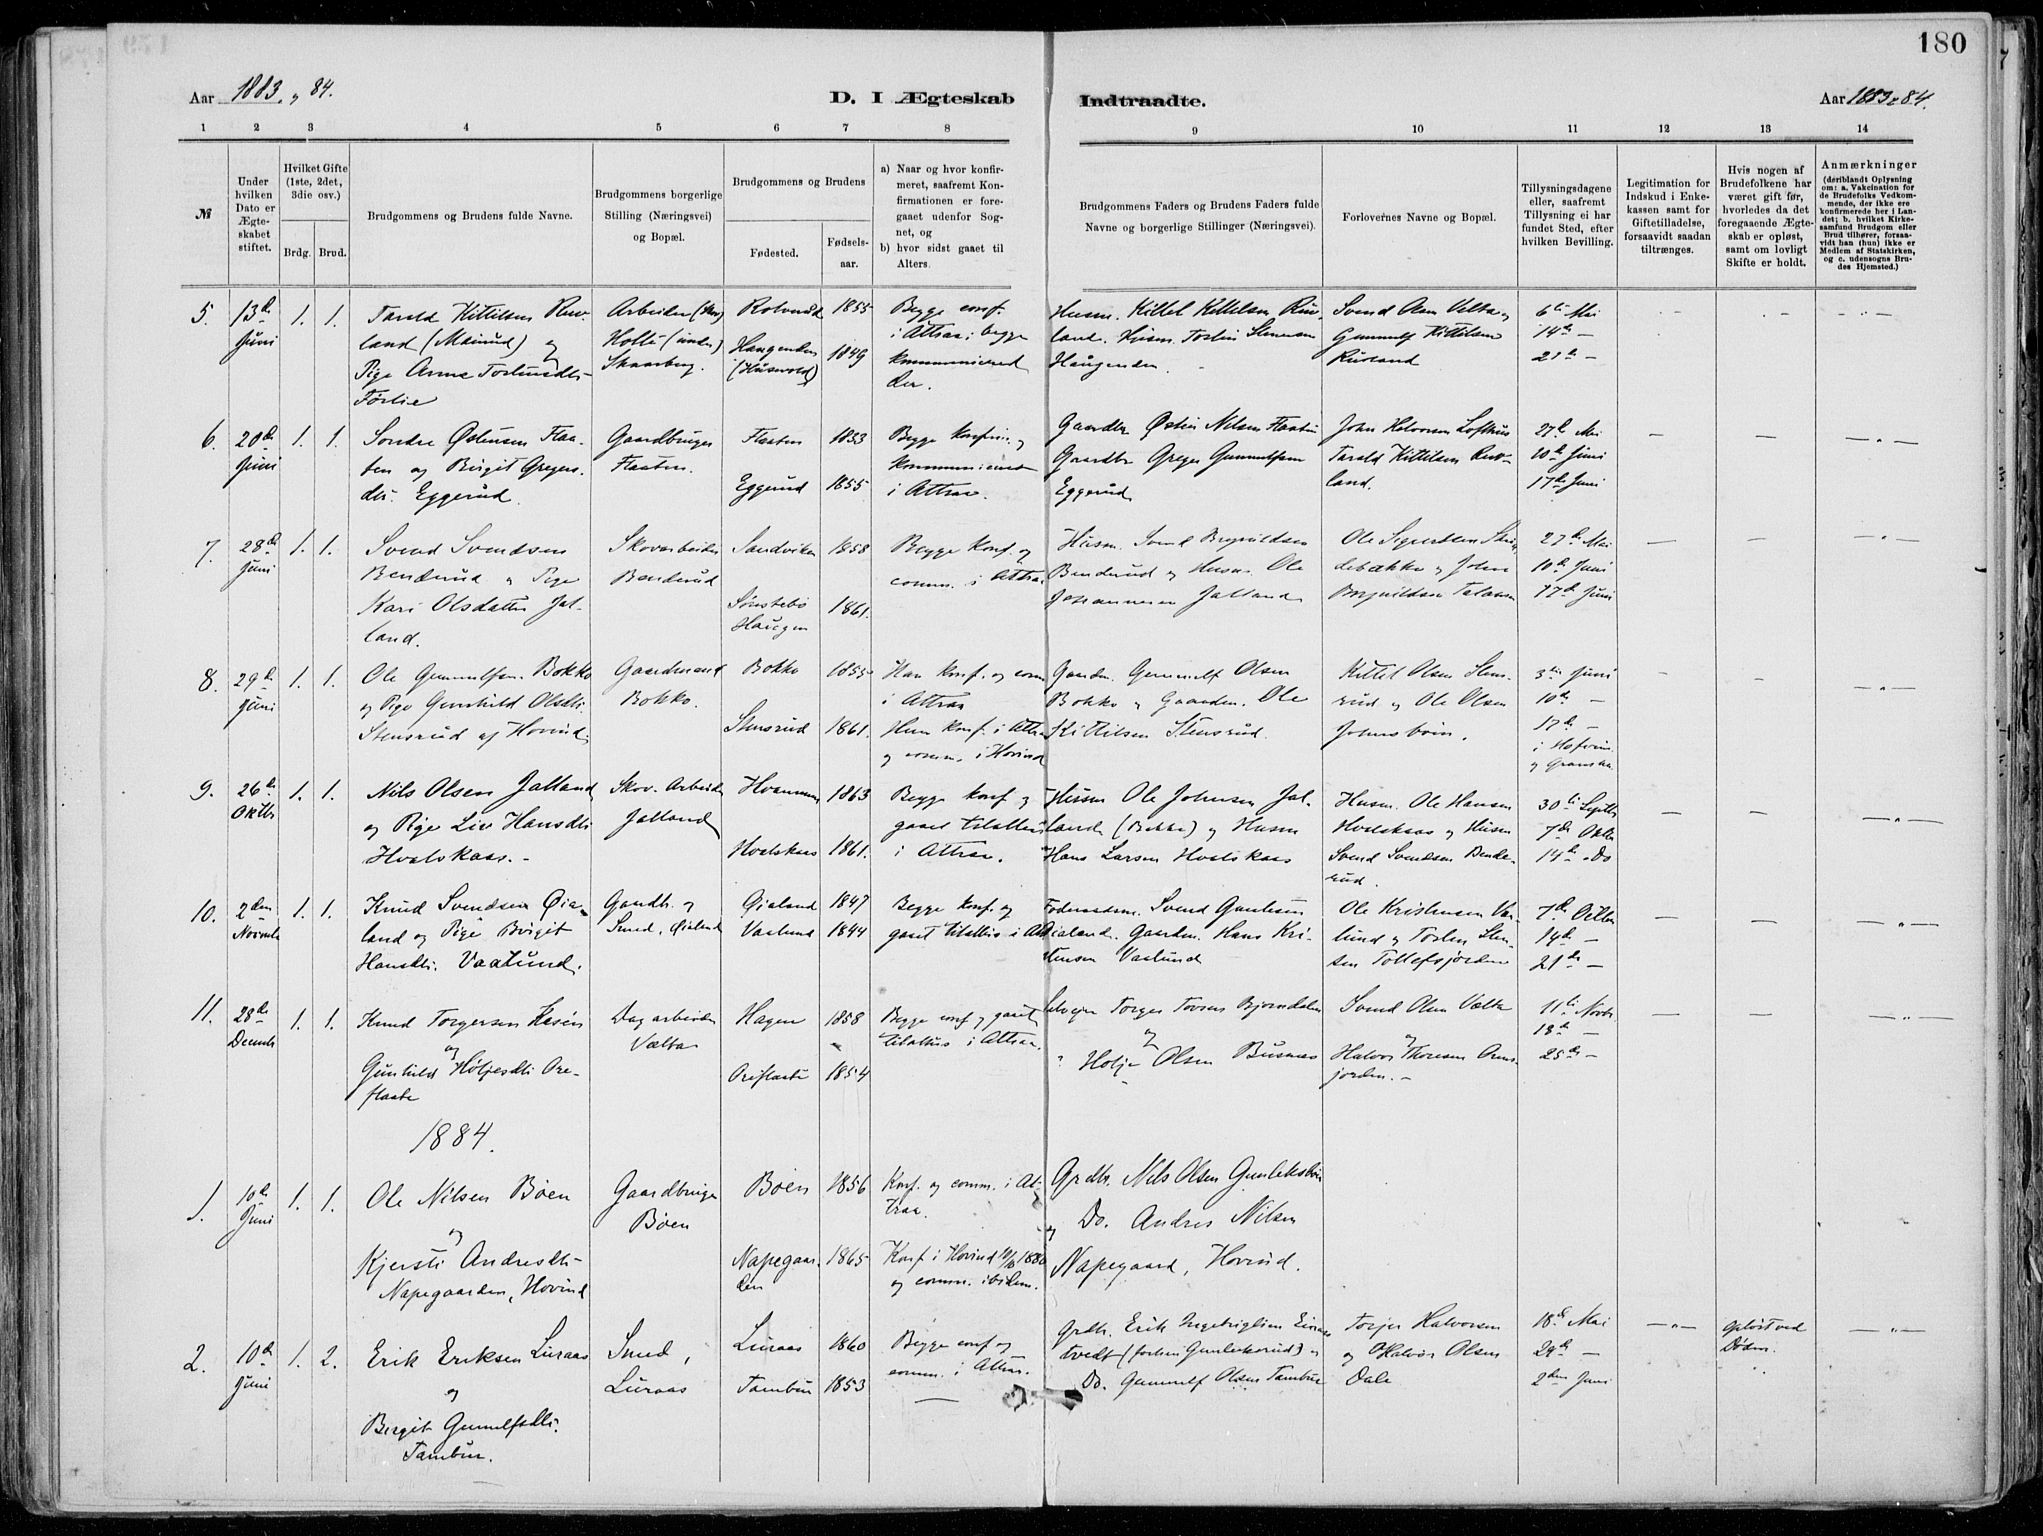 180
Aar 1883 „ 84.
D. I Ægteskab Indtraadte.
Aar 1883 „ 84.
1 2 3 4 5 6 7 8 9 10 11 12 13 14
№
Under hvilken Dato er Ægteskabet stiftet.
Hvilket Gifte (1ste, 2det, 3die osv.)
Brdg. Brud.
Brudgommens og Brudens fulde Navne.
Brudgommens borgerlige Stilling (Næringsvei) og Bopæl.
Brudgommens og Brudens
Fødested.
Fødselsaar.
a) Naar og hvor konfirmeret, saafremt Konfirmationen er foregaaet udenfor Sognet, og
b) hvor sidst gaaet til Alters.
Brudgommens Faders og Brudens Faders fulde Navne og borgerlige Stillinger (Næringsvei).
Forlovernes Navne og Bopæl.
Tillysningsdagene eller, saafremt Tillysning ei har fundet Sted, efter hvilken Bevilling.
Legitimation for Indskud i Enkekassen samt for Giftetilladelse, forsaavidt saadan tiltrænges.
Hvis nogen af Brudefolkene har været gift før, hvorledes da det foregaaende Ægteskab er opløst, samt om lovligt Skifte er holdt.
Anmærkninger (deriblandt Oplysning om: a. Vakcination for de Brudefolks Vedkommende, der ikke ere konfirmerede her i Landet; b. hvilket Kirkesamfund Brudgom eller Brud tilhører, forsaavidt han (hun) ikke er Medlem af Statskirken, og c. udensogns Brudes Hjemsted.)
5. 13de Juni 1. 1.
Tarald Kittilsen Ruuland og
Pige Anne
Arbeider
Skaarberg.
1855
1849
Begge conf. i Attraa; begge
Husm. Kittel Kittilsen
Haugenden.
Svend Olsen Velta og
Gunnulf Kittilsen
Ruuland
6te Mai
14de —
21de —
6. 20de Juni 1. 1.
Sondre Østensen Flaaten og Birgit Gregersdtr. Eggerud.
Gaardbruger
Flaaten.
Flaaten 1853
Eggerud 1855
Begge konfirm. og
i Attraa.
Gaardbr. Østen Nilsen Flaaten
Gaardbr Greger Gunnulfsen
Eggerud
John Halvorsen Lofthus
Tarald Kittilsen Ruuland.
27de Mai
10de Juni
17de Juni
7. 28de Juni 1. 1.
Svend Svendsen
Benderud og Pige
Kari Olsdatter Jalland.
Skovarbeider
Benderud
Sandviken 1858
Sønstebø
Haugen 1861.
Begge Konf. og
comm. i Attraa
Husm. Svend
Benderud og Husm. Ole
Johannesen Jalland
27de Mai
10de Juni
17de Juni
8. 29de Juni 1. 1.
Ole Gunnulfsen Bokko
og Pige Gunhild Olsdtr.
Stensrud af Hovind.
Gaardmand
Bokko.
Bokko 1855
Stensrud 1861.
Han konf. og comm
i Attraa
Hun konf. i Attraa
og comm. i Hovind
Gaardm. Gunnulf Olsen
Bokko og Gaardm. Ole
Kittilsen Stensrud.
Kittel Olsen Stensrud og Ole Olsen
3die Juni
10de —
17de —
9. 26de Oktbr 1. 1.
Nils Olsen Jalland
og Pige Live Hansdtr
Hvalskaas. -
Skov. Arbeider
Jalland
1863
Hvalskaas 1861.
Begge konf og
gaaet tilalters
i Attraa.
Husm Ole Johnsen Jalland (Bekke) og Husm
Hans Larsen Hvalskaas
Husm. Ole Hansen
Hvalskaas og Husm
Svend Svendsen Benderud.
30te Septbr
7de Oktbr
14de Do
10. 2den Novembr 1. 1.
Knud Svendsen Øialand og Pige Birgit
Hansdtr. Vaalund.
Gaardbr. og
Smed, Øialand
Øialand 1847
Vaalund 1844
Begge konf. og
gaaet tilalters i Att
Føderaadsm. Svend
Øialand. Gaardm. Hans Kristensen Vaalund
Ole Kristensen Vaalund og Torsten
7de Octbr
14de —
21de —
11. 28de Decembr 1. 1.
Knud Torgersen
og
Gunhild Høljesdtr Oreflaate
Dagarbeider
Vælta
Hagen 1858
Oreflaate 1854
Begge conf. og gaaet
tilalters i Attraa.
Selveier Torger Bjørndalen
og
Holje Olsen Busnæs
Svend Olsen Vælta
og
11te Novbr.
18de —
25de —
1884.
1. 10de Juni 1. 1.
Ole Nilsen Bøen
og
Kjersti Andresdtr.
Napegaarden, Hovind
Gaardbruger
Bøen
Bøen 1856
Napegaarden 1865
Konf. og comm. i Attraa.
Konf. i Hovind 1880
og comm. ibidem.
Grdbr. Nils Olsen
og Do. Andres Nilsen
Napegaard, Hovind.
2. 10de Juni 1. 2.
Erik Eriksen Luraas
og
Birgit Gunnulfsdtr.
Tambur.
Smed,
Luraas
Luraas 1860
Tambur 1853
Begge conf og
comm. i Attraa.
Grdbr. Erik
Do. Gunnulf Olsen Tambur
Torjer Halvorsen
og Halvor Olsen
Dale
18de Mai
2den Juni
opløst ved
Døden.